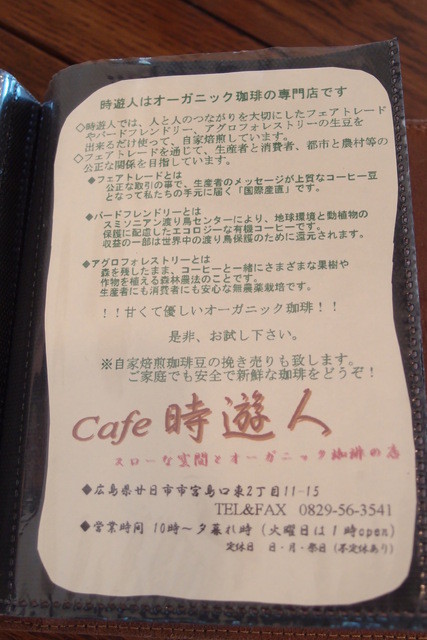 時遊人はオーガニック珈琲の専門店です
◇時遊人では、人と人のつながりを大切にしたフェアトレード
やバードフレンドリー、アグロフォレストリーの生豆を
出来るだけ使って、自家焙煎しています。
◇フェアトレードを通じて、生産者と消費者、都市と農村等の
公正な関係を目指しています。
◆フェアトレードとは
公正な取引の事で、生産者のメッセージが上質なコーヒー豆
となって私たちの手元に届く「国際産直」です。
◆バードフレンドリーとは
スミソニアン渡り鳥センターにより、地球環境と動植物の
保護に配慮したエコロジーな有機コーヒーです。
収益の一部は世界中の渡り鳥保護のために還元されます。
◆アグロフォレストリーとは
森を残したまま、コーヒーと一緒にさまざまな果樹や
作物を植える森林農法のことです。
生産者にも消費者にも安心な無農薬栽培です。
！！甘くて優しいオーガニック珈琲！！
是非、お試し下さい。
※自家焙煎珈琲豆の挽き売りも致します。
ご家庭でも安全で新鮮な珈琲をどうぞ！
Cafe 時遊人
スローな空間とオーガニック珈琲の店
◆広島県廿日市市宮島口東2丁目11-15
TEL&FAX 0829-56-3541
◆営業時間 10時～夕暮れ時（火曜日は1時open）
定休日 日・月・祭日（不定休あり）